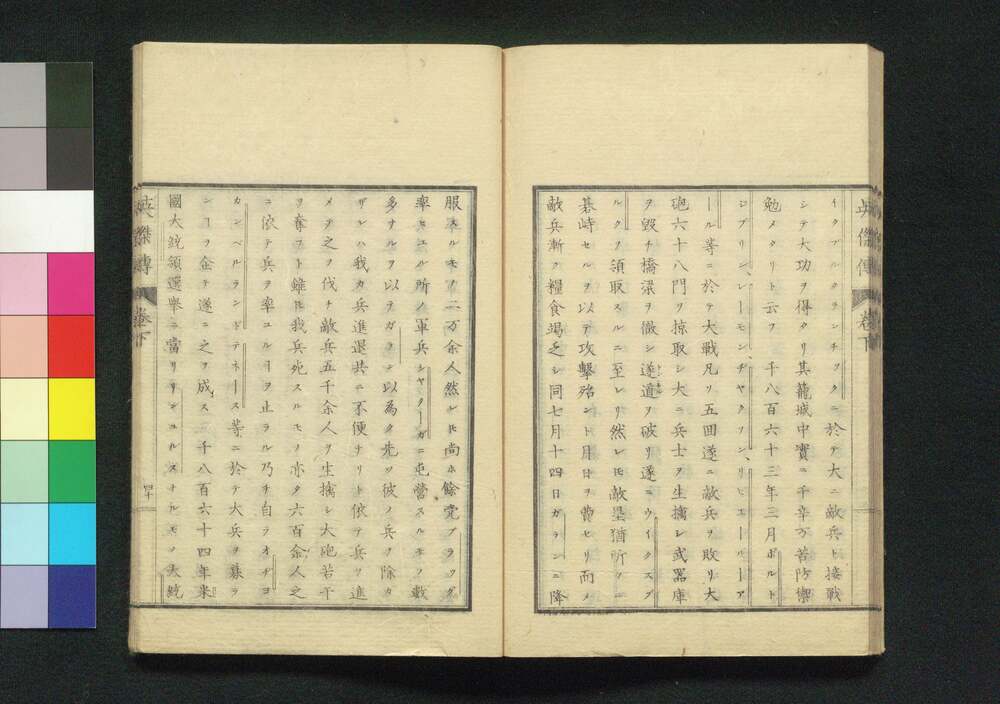 イクブルクランチック ニ 於テ大ニ敵兵ト接戰
シテ大功ヲ得タリ其籠城中實ニ千辛万苦防禦
勉メタリト云フ 千八百六十三年三月ポルト
ロブリン、レーモン、ヂヤクソン、リピエールーア
ール等ニ於テ大戰凡ソ五回遂ニ敵兵ヲ敗リ大
砲六十八門ヲ掠取シ大ニ兵士ヲ生擒レ武器庫
ヲ毀チ橋梁ヲ徹シ遂道ヲ破リ遂ニウイクスブ
ルクヲ領取スルニ至レリ然レ𪜈敵塁猶所〻ニ
碁峙セルヲ以テ攻擊殆ント月日ヲ費セリ而メ
敵兵漸ク糧食竭乏シ同七月十四日ガランニ降
服スルモノ二万余人然レ𪜈尚ホ餘党ブラッグ
率ヒユル所ノ軍兵シヤターガニ屯營スルモノ數
多ナルヲ以テガラン以為ク先ツ彼ノ兵ヲ除カ
ザレハ我カ兵進退共ニ不便ナリト依テ兵ヲ進
メテ之ヲ伐チ敵兵五千余人ヲ生擒シ大砲若干
ヲ奪フト雖𪜈我兵死スルモノ亦タ六百余人之
ニ依テ兵ヲ率ユルヿヲ止ラル乃チ自ラオヂヨ
カンベルランドテネース等ニ於テ大兵ヲ募ラ
ンヿヲ企テ遂ニ之ヲ成ス 千八百六十四年米
國大統領選舉ニ當リリンコルスナルモノ大統
英傑傳 卷下
英傑傳 卷下